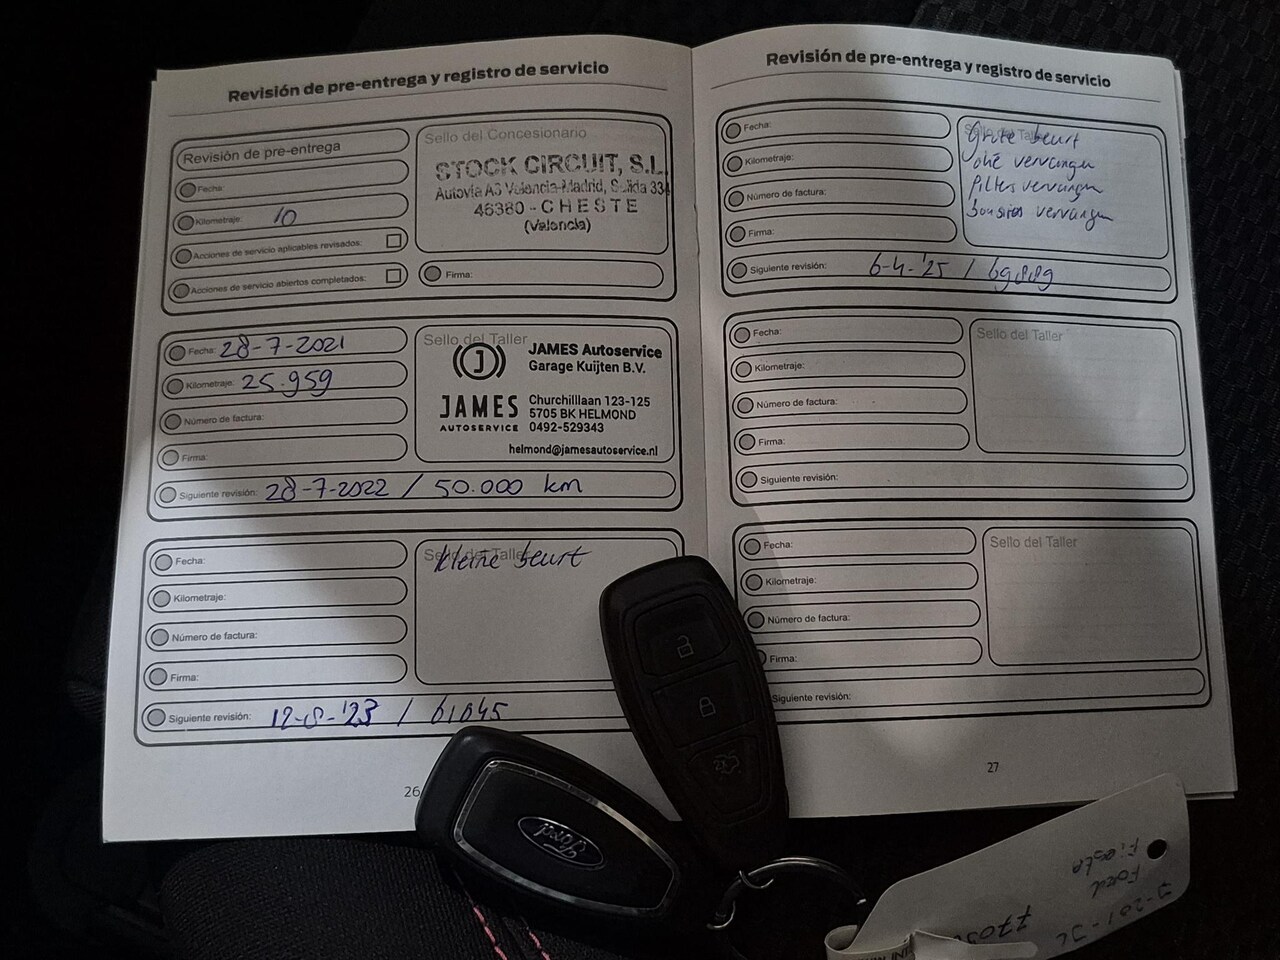 Revisión de pre-entrega y registro de servicio
Revisión de pre-entrega
Fecha:
Kilometraje: 10
Acciones de servicio aplicables revisados:
Acciones de servicio abiertos completados:
Sello del Concesionario
STOCK CIRCUIT, S.L.
Autovía A3 Valencia-Madrid, Salida 334
46380 - CHESTE
(Valencia)
Firma:
Fecha: 28-7-2021
Kilometraje: 25.959
Número de factura:
Firma:
Sello del Taller
J
JAMES Autoservice
Garage Kuijten B.V.
JAMES
AUTOSERVICE
Churchilllaan 123-125
5705 BK HELMOND
0492-529343
helmond@jamesautoservice.nl
Siguiente revisión: 28-7-2022 / 50.000 km
Fecha:
Kilometraje:
Número de factura:
Firma:
Sello del Taller
kleine beurt
Siguiente revisión: 12-8-'23 / 61045
26
Revisión de pre-entrega y registro de servicio
Fecha:
Kilometraje:
Número de factura:
Firma:
Sello del Taller
Grote beurt
olie vervangen
filters vervangen
bougies vervangen
Siguiente revisión: 6-4-'25 /
Fecha:
Kilometraje:
Número de factura:
Firma:
Sello del Taller
Siguiente revisión:
Fecha:
Kilometraje:
Número de factura:
Firma:
Sello del Taller
Siguiente revisión:
27
Ford
Ford
Fiesta